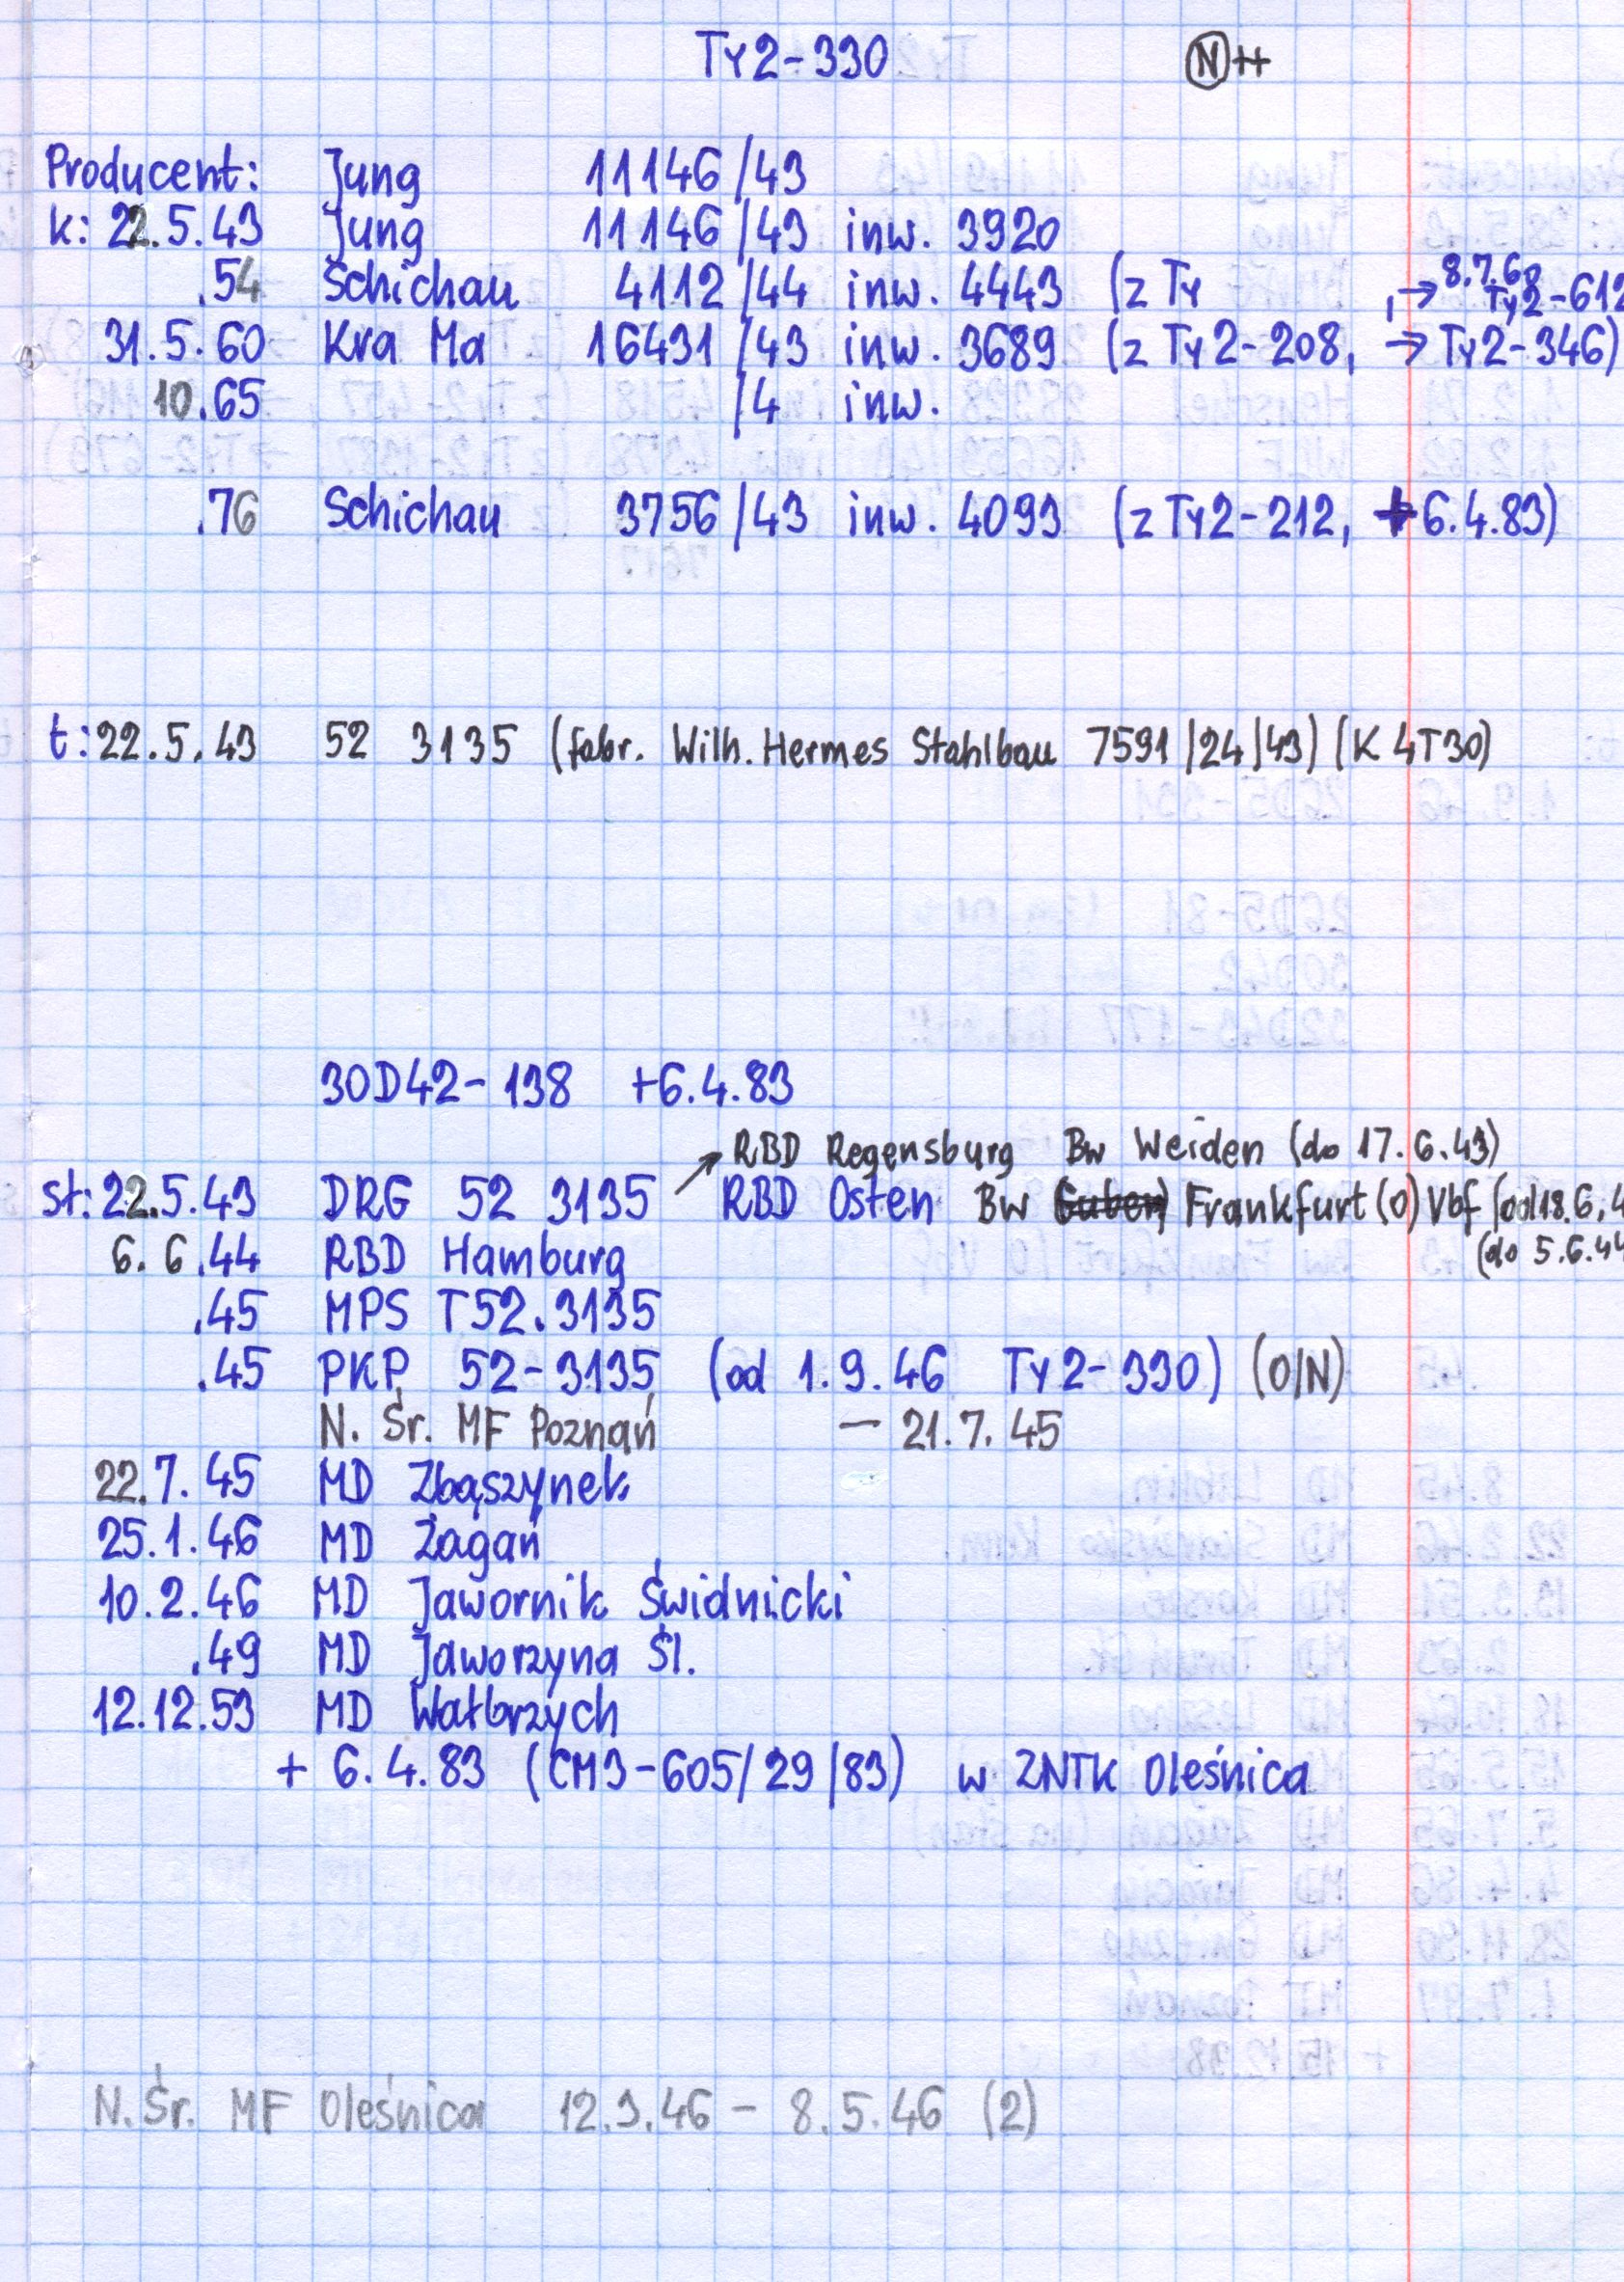 Ty2-330 N++
Producent: Jung 11146/43
k: 22.5.43 Jung 11146/43 inw. 3920
.54 Schichau 4112/44 inw. 4443 (z Ty , → 8.7.68 Ty2-612
31.5.60 Kra Ma 16431/43 inw. 3689 (z Ty2-208, → Ty2-346)
10.65 /4 inw.
.76 Schichau 3756/43 inw. 4093 (z Ty2-212, +6.4.83)
t: 22.5.43 52 3135 (fabr. Wilh. Hermes Stahlbau 7591/24/43) (K 4T30)
30D42-138 +6.4.83
↗ RBD Regensburg Bw Weiden (do 17.6.43)
st: 22.5.43 DRG 52 3135 RBD Osten Bw Guben Frankfurt (O) Vbf (od 18.6.4
(do 5.6.44
6.6.44 RBD Hamburg
.45 MPS T52.3135
.45 PKP 52-3135 (od 1.9.46 Ty2-330) (O/N)
N. Śr. MF Poznań — 21.7.45
22.7.45 MD Zbąszynek
25.1.46 MD Żagań
10.2.46 MD Jawornik Świdnicki
.49 MD Jaworzyna Śl.
12.12.53 MD Wałbrzych
+ 6.4.83 (CM3-605/29/83) w ZNTK Oleśnica
N. Śr. MF Oleśnica 12.3.46 - 8.5.46 (2)